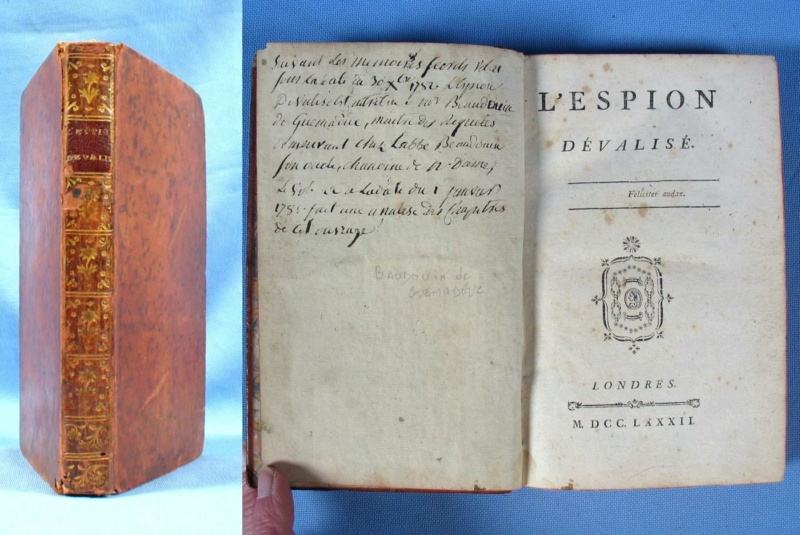 L'ESPION
DÉVALI
Suivant les memoires secrets vol 21
sous la date du 30 Xbre 1782 L'Espion
Devalisé est attribué à mr Beaudouin
de Guemadüc, maitre des requetes
demeurant chez L'abbé Beaudouin
son oncle, chanoine de N. Dame,
Le vol a La date du 1 janvier
1783 fait une analise des Chapitres
de cet ouvrage
BAUDOUIN de
GUEMADEUC
L'ESPION
DÉVALISÉ.
Feliciter audax.
LONDRES.
M. DCC. LXXXII.